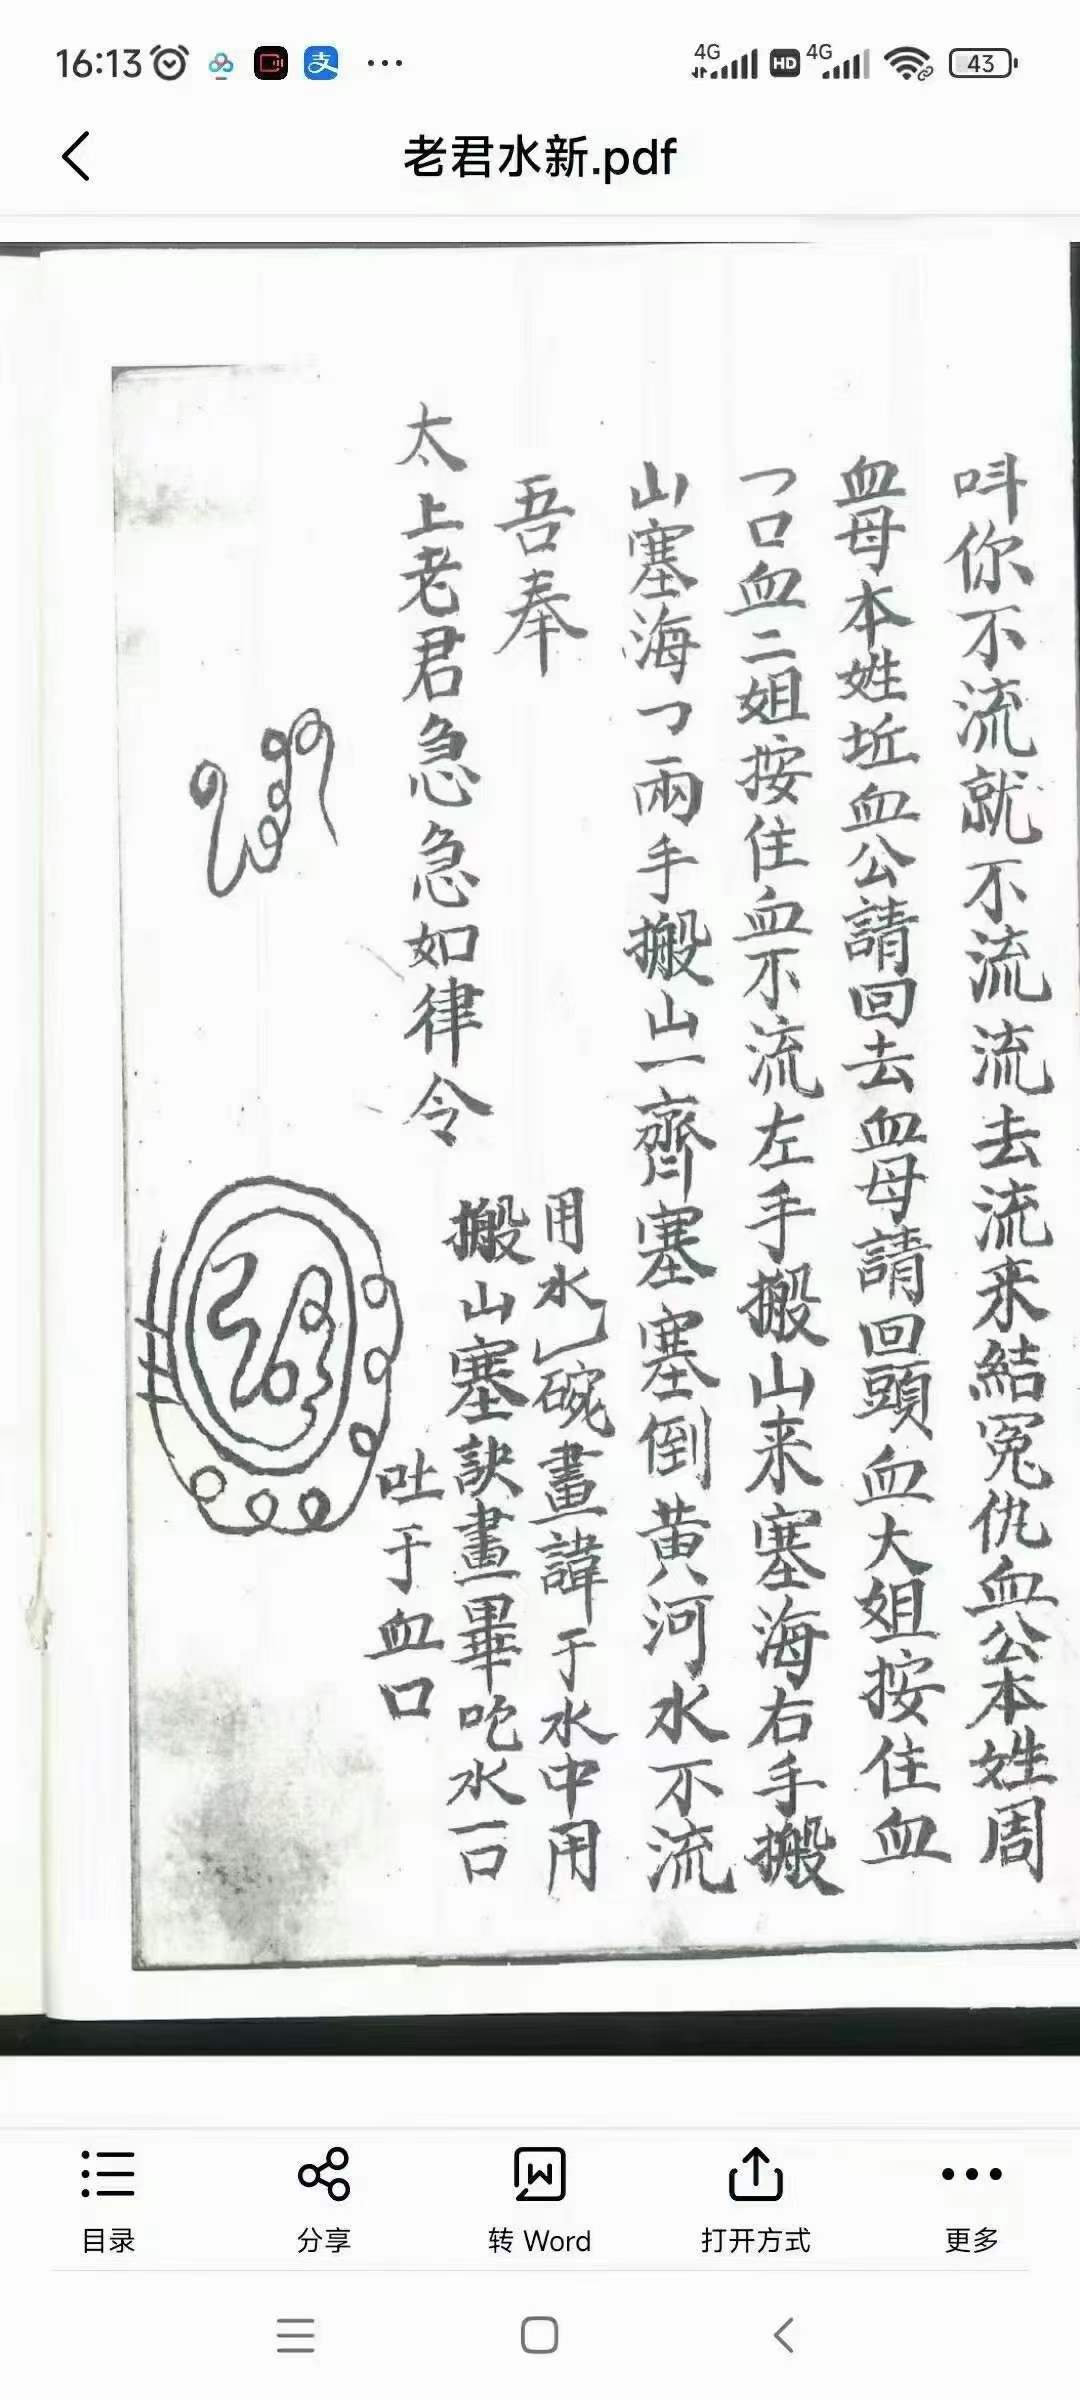 16:13
4G HD 4G 43
老君水新.pdf
呌你不流就不流流去流来結冤仇血公本姓周
血母本姓坵血公請回去血母請回頭血大姐按住血
乛口血二姐按住血不流左手搬山来塞海右手搬
山塞海乛兩手搬山一齊塞塞倒黄河水不流
吾奉
用水乚碗畫諱于水中用
搬山塞訣畫畢吃水一口
吐于血口
太上老君急急如律令
目录
分享
转 Word
打开方式
更多